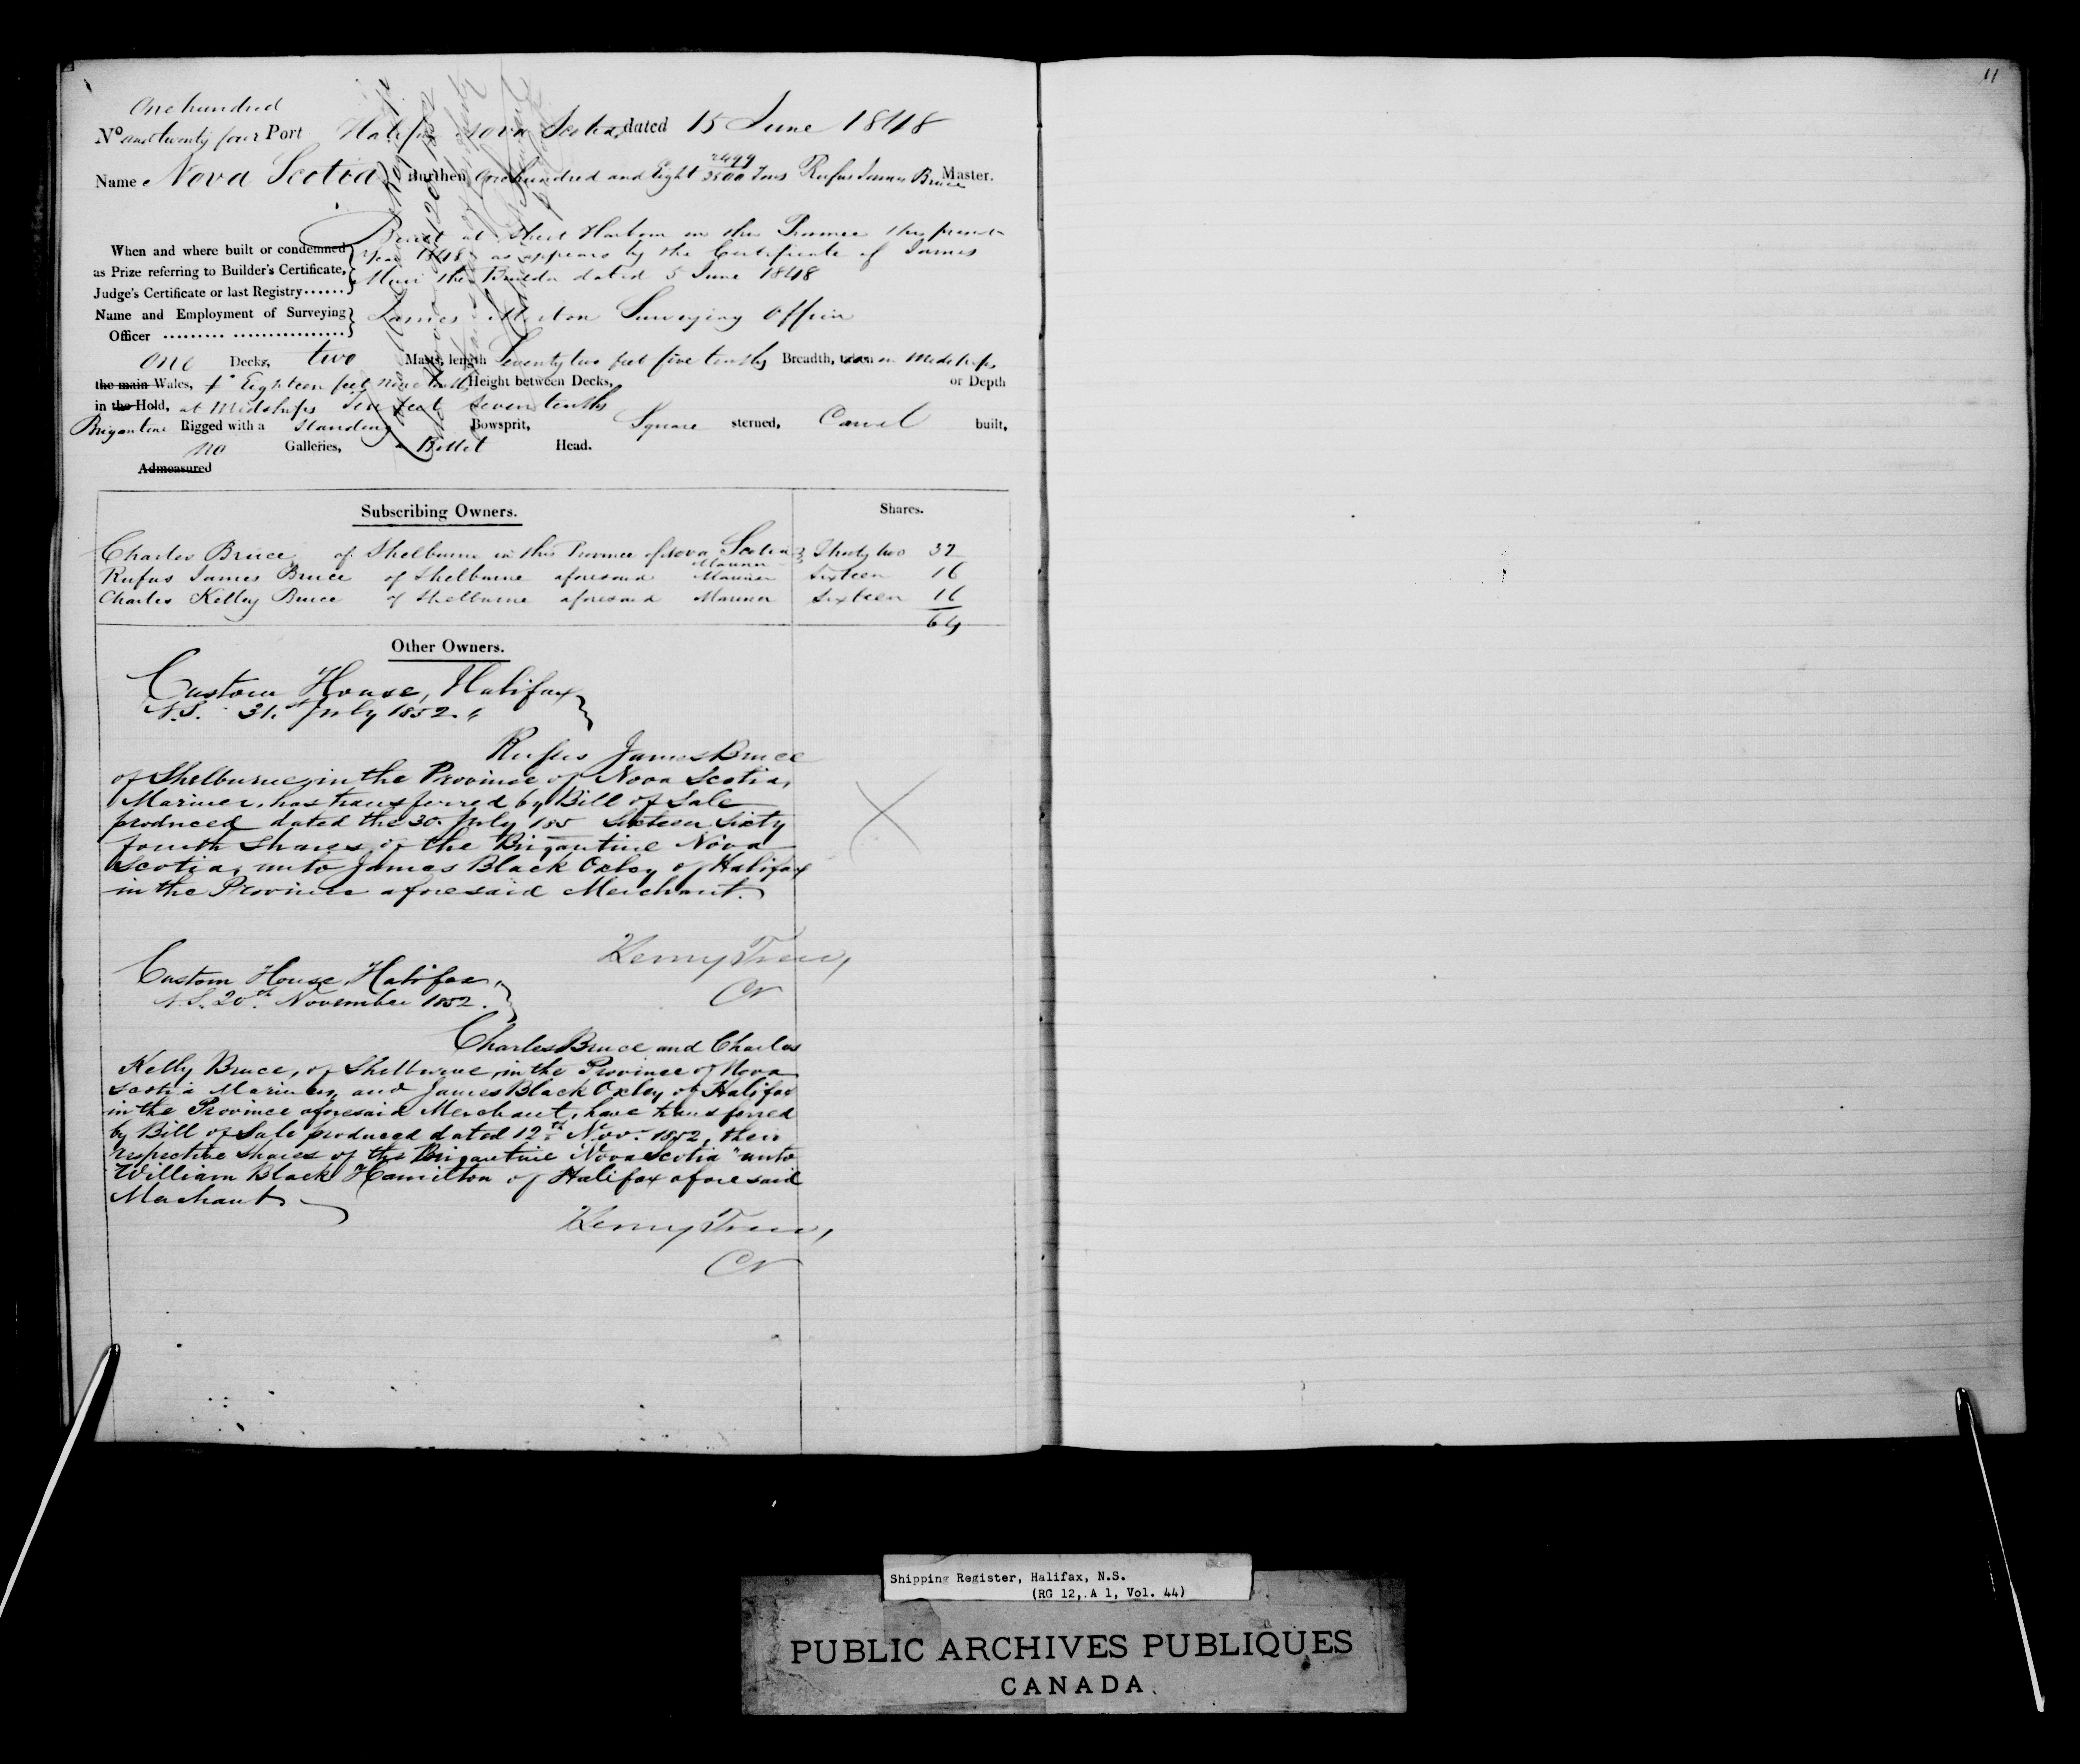 11
One hundred
No and twenty four Port Halifax Nova Scotia dated 15 June 1848
Name Nova Scotia Burthen One hundred and Eight 2499/3500 Tons Rufus James Bruce Master.
Built at Sheet Harbour in this Province this present
When and where built or condemned year 1848 as appears by the Certificate of James
as Prize referring to Builder's Certificate, the Builder dated 5 June 1848
Judge's Certificate or last Registry......
Name and Employment of Surveying James Surveying Officer
Officer ......... ..................
One Decks, two Masts, length Seventy two feet five tenths Breadth, taken on Midships
the main Wales, Eighteen feet nine tenths Height between Decks, or Depth
in the Hold, at Midships Ten feet Seven tenths
Brigantine Rigged with a Standing Bowsprit, Square sterned, Carvel built,
no Galleries, Billet Head.
Admeasured
Subscribing Owners. Shares.
Charles Bruce of Shelburne in this Province of Nova Scotia Mariner Thirty two 32
Rufus James Bruce of Shelburne aforesaid Mariner Sixteen 16
Charles Kelley Bruce of Shelburne aforesaid Mariner Sixteen 16
64
Other Owners.
Custom House, Halifax
N.S. 31st July 1852.
Rufus James Bruce
of Shelburne, in the Province of Nova Scotia,
Mariner, has transferred by Bill of Sale
produced dated the 30 July 185 Sixteen Sixty
fourth Shares of the Brigantine Nova
Scotia, unto James Black Oxley of Halifax
in the Province aforesaid Merchant.
Custom House, Halifax,
N.S. 20th November 1852.
Charles Bruce and Charles
Kelly Bruce, of Shelburne, in the Province of Nova
Scotia Mariners, and James Black Oxley of Halifax
in the Province aforesaid Merchant, have transferred
by Bill of Sale produced dated 12th Nov. 1852, their
respective shares of the Brigantine Nova Scotia" unto
William Black Hamilton of Halifax aforesaid
Merchant
Shipping Register, Halifax, N.S.
(RG 12, A 1, Vol. 44)
PUBLIC ARCHIVES PUBLIQUES
CANADA